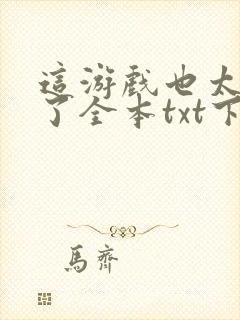 這游戲也太
了全本txt下
馬齊